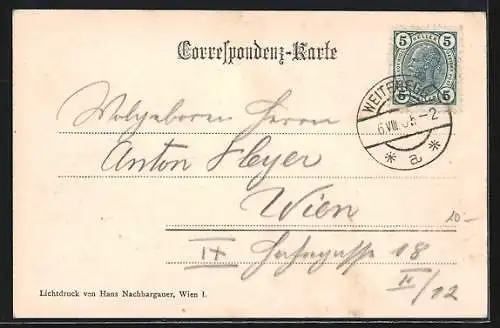 Correspondenz-Karte
5 HELLER 5
5 5
WEITERSF
6.VIII.05-2
* a *
Wohlgeboren Herrn
Anton Heyer
Wien
IX Hahngasse 18
II/12
10-
Lichtdruck von Hans Nachbargauer, Wien I.